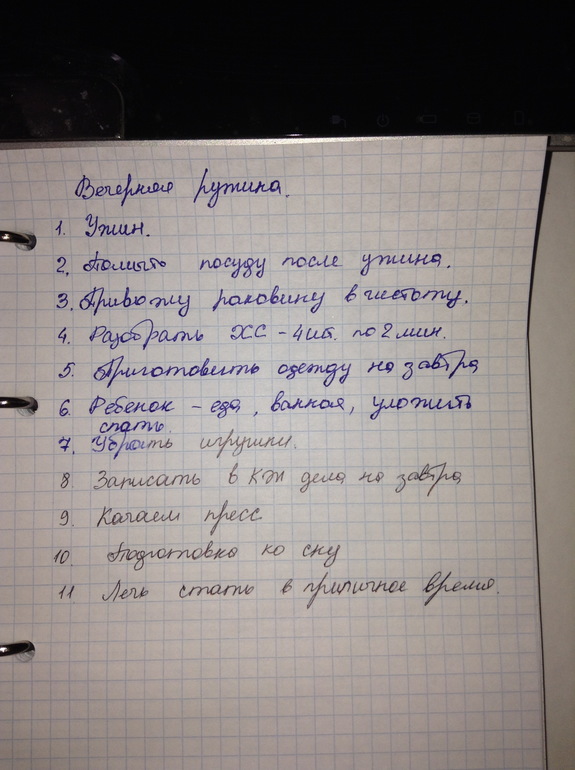 Вечерняя рутина.
1. Ужин.
2. Помыть посуду после ужина.
3. Привожу раковину в чистоту.
4. Разобрать ХС - 4 шт. по 2 мин.
5. Приготовить одежду на завтра
6. Ребенок - еда, ванная, уложить
спать.
7. Убрать игрушки.
8 Записать в КЖ дела на завтра
9 Качаем пресс
10 Подготовка ко сну
11 Лечь спать в приличное время.